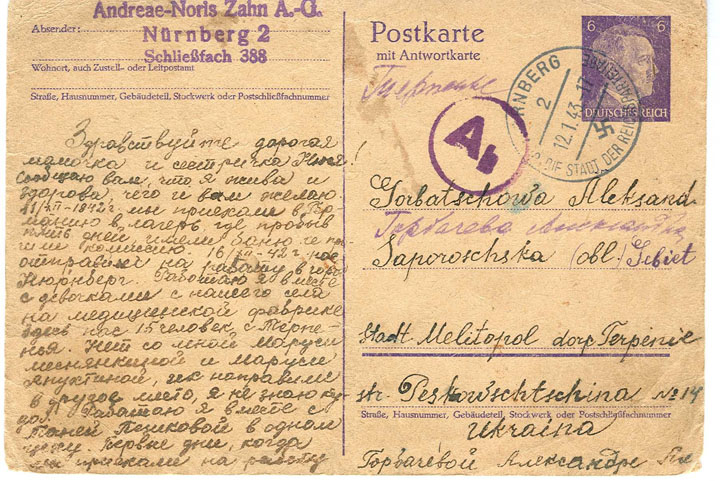 Andreae-Noris Zahn A.-G.
Absender:
Nürnberg 2
Schließfach 388
Wohnort, auch Zustell- oder Leitpostamt
Straße, Hausnummer, Gebäudeteil, Stockwerk oder Postschließfachnummer
Здравствуйте дорогая
мамочка и сестричка
Сообщаю вам, что я жива и
здорова чего и вам желаю.
11/XII-1942 г мы приехали в Гер
манию в лагерь где пробыв
пять дней имели баню и про
комиссию 16/XII-42 г нас
отправили на работу в город
Нюрнберг. Работаю я вместе
с девочками с нашего села
на медицинской фабрике
здесь нас 15 человек, с Терпе-
нья. Нет со мной Маруси
и Маруси
их направили
в другое место, я не знаю ку
да. Работаю я вместе с
Таней Пешковой в одном
цеху. Первые дни, когда
мы приехали на работу
Postkarte
mit Antwortkarte
Терпение
6 6
DEUTSCHES REICH
NÜRNBERG
2
12.1.43.-17
DIE STADT DER REICHSPARTEITAGE
Ab
Gorbatschowa Aleksand
Горбачева Александра
Saporoschska (обл.) Gebiet
Stadt Melitopol dorf Terpenie
str. Peskowschtschina No 14
Straße, Hausnummer, Gebäudeteil, Stockwerk oder Postschließfachnummer
Ukraina
Горбачёвой Александре